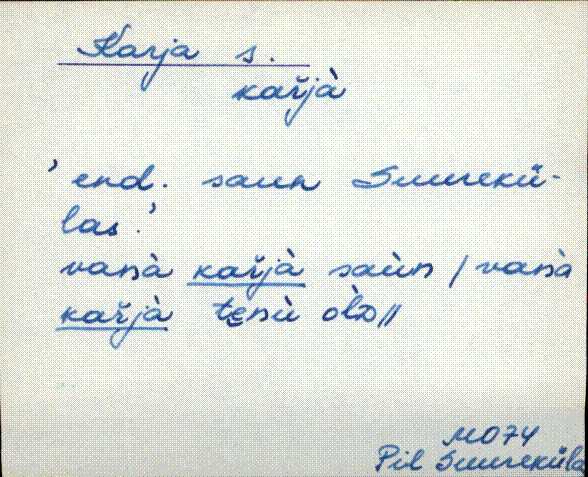 Karja s.
kařjà
' end. saun Suurekü-
las.'
vanà kařjà saùn / vanà
kařjà tɛnù òlɔ //
MO74
Pil Suureküla